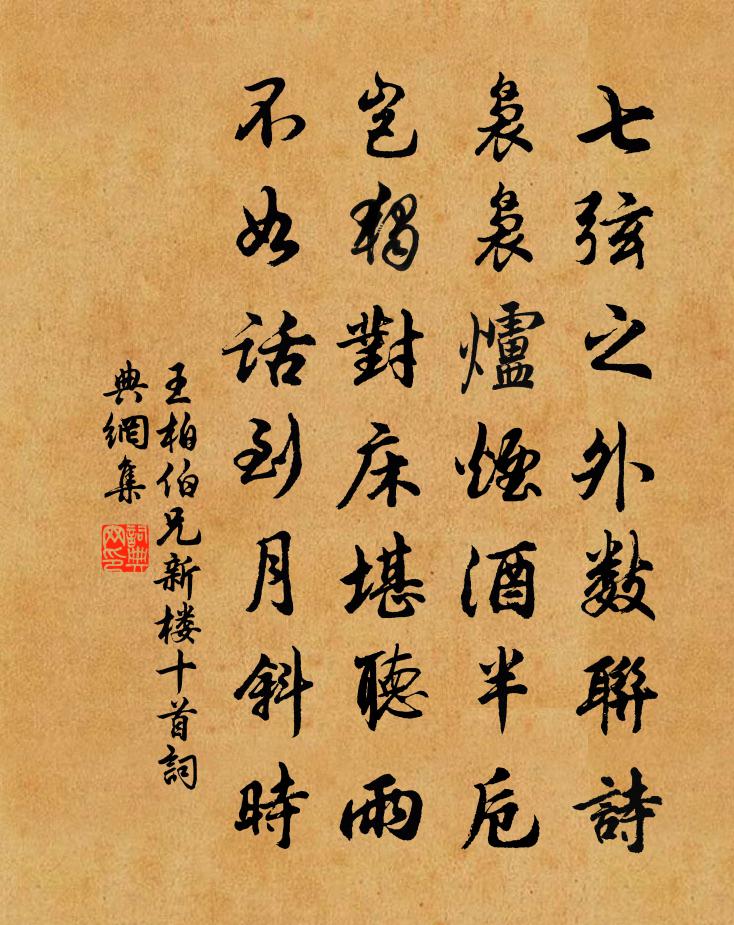 七弦之外数聯詩
裊裊爐煙酒半卮
岂獨對床堪聽雨
不如话到月斜時
王柏伯兄新楼十首詞
典網集
詞典网印